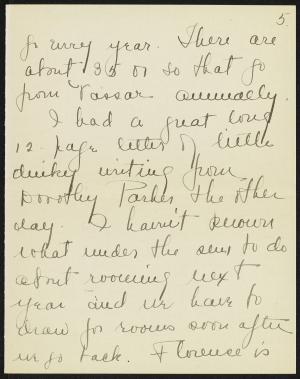 5.
go every year. There are
about 35 or so that go
from Vassar annually.
I had a great long
12 page letter of little
dinkey writing from
Dorothy Parker the other
day. I haven't known
what under the sun to do
about rooming next
year and we have to
draw for rooms soon after
we go back. Florence is